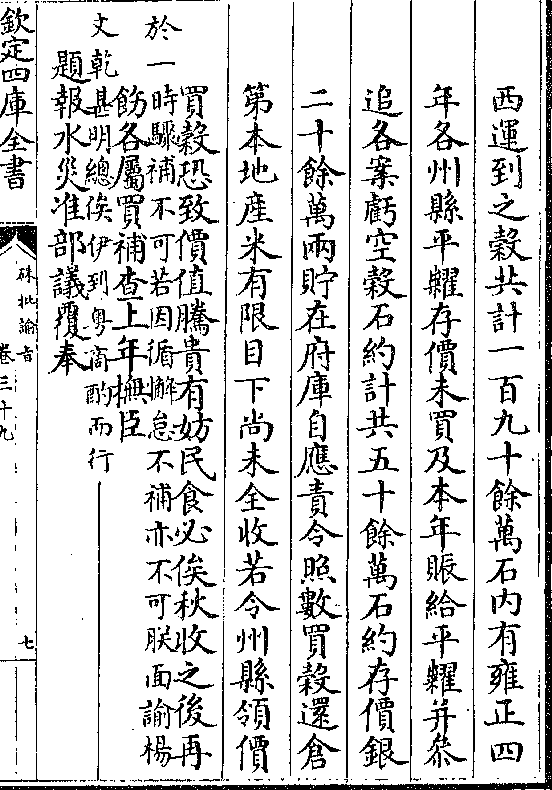 西運到之穀共計一百九十餘萬石内有雍正四
年各州縣平糶存價未買及本年賑給平糶并叅
追各案虧空穀石約計共五十餘萬石約存價銀
二十餘萬兩貯在府庫自應責令照數買穀還倉
第本地産米有限目下尚未全收若令州縣領價
買穀恐致價值騰貴有妨民食必俟秋收之後再
於一時驟補不可若因循懈怠不補亦不可朕面諭楊
飭各屬買補查上年撫臣
文乾甚明總俟伊到粤商酌而行
題報水災准部議覆奉
欽定四庫全書
硃批諭旨
卷三十九
七